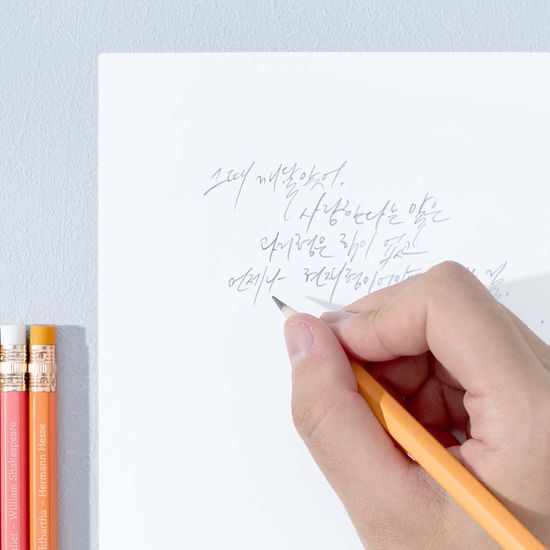 그때 깨달았어.
사랑한다는 말은
과거형은 힘이 없고
언제나 현재형이어야
걸.
lliet – William Shakespeare
ddhartha – Hermann Hesse